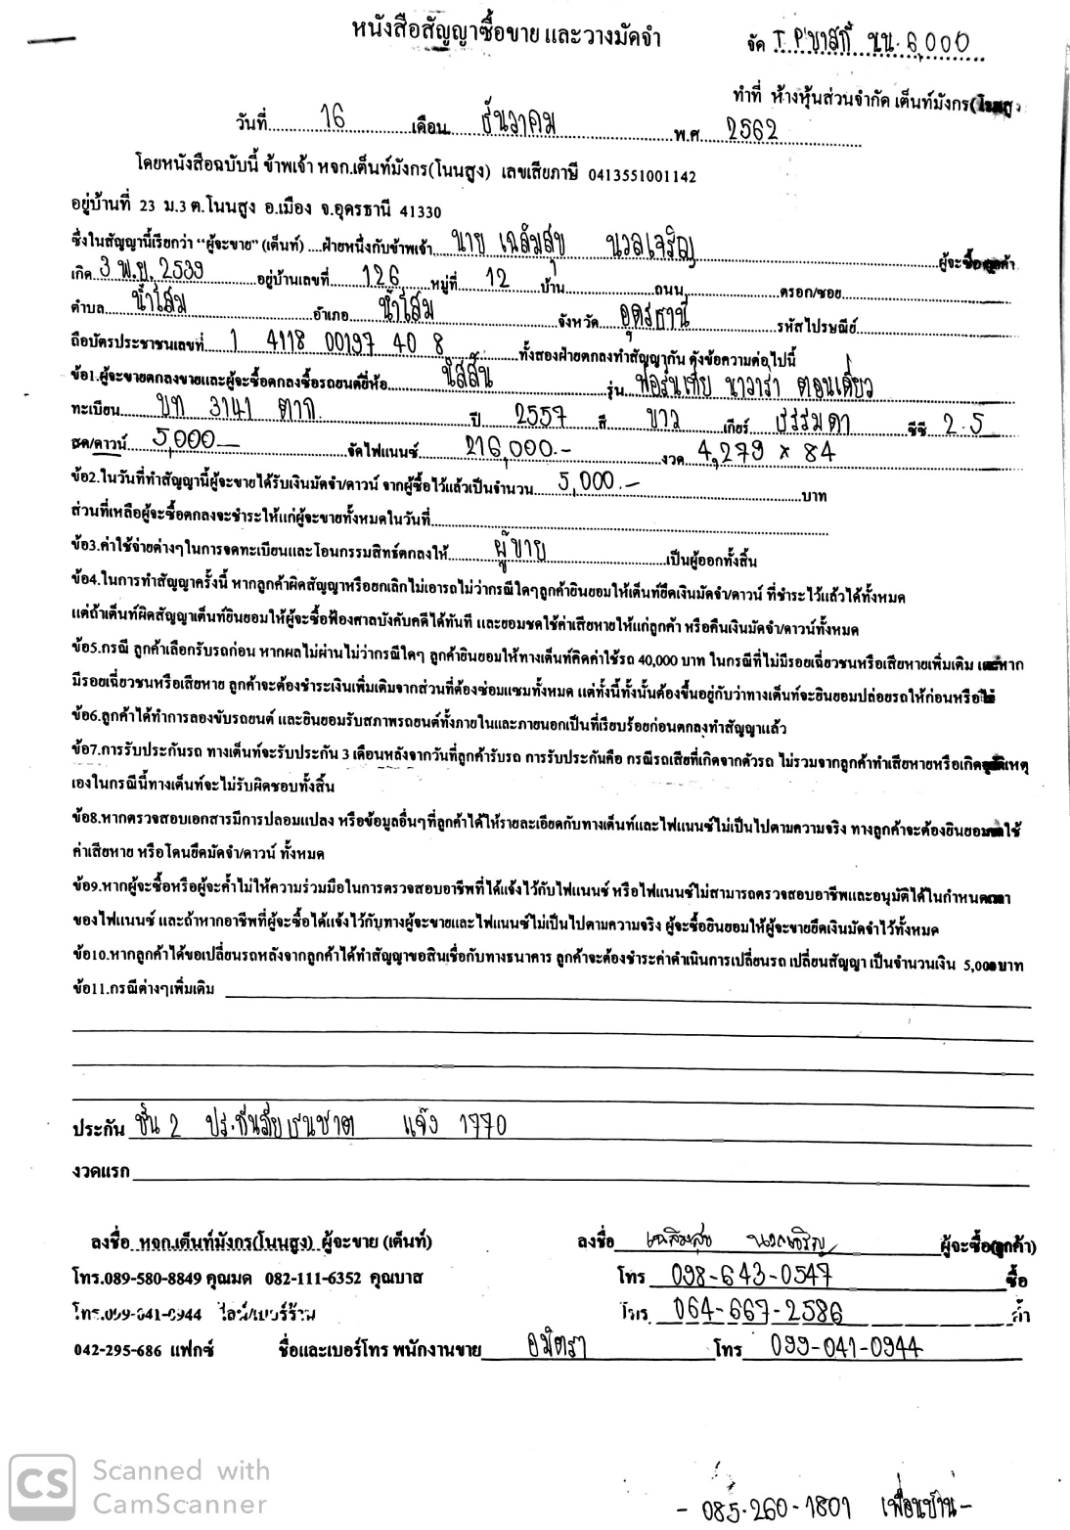 หนังสือสัญญาซื้อขาย และวางมัดจำ
จัด T.P ชาลิกี้ นน. 6,000
ทำที่ ห้างหุ้นส่วนจำกัด เต็นท์มังกร(โนนสูง
วันที่ 16 เดือน ธันวาคม พ.ศ 2562
โดยหนังสือฉบับนี้ ข้าพเจ้า หจก.เต็นท์มังกร(โนนสูง) เลขเสียภาษี 0413551001142
อยู่บ้านที่ 23 ม.3 ต.โนนสูง อ.เมือง จ.อุดรธานี 41330
ซึ่งในสัญญานี้เรียกว่า "ผู้จะขาย" (เต็นท์) ....ฝ่ายหนึ่งกับข้าพเจ้า นาย เฉลิมสุข นวลเจริญ ผู้จะซื้อลูกค้า
เกิด 3 พ.ย. 2539 อยู่บ้านเลขที่ 126 หมู่ที่ 12 บ้าน ถนน ตรอก/ซอย
ตำบล น้ำโสม อำเภอ น้ำโสม จังหวัด อุดรธานี รหัสไปรษณีย์
ถือบัตรประชาชนเลขที่ 1 4118 00197 40 8 ทั้งสองฝ่ายตกลงทำสัญญากัน ดังข้อความต่อไปนี้
ข้อ1.ผู้จะขายตกลงขายและผู้จะซื้อตกลงซื้อรถยนต์ยี่ห้อ นิสสัน รุ่น ฟอร์นเทีย นาวาร่า ตอนเดียว
ทะเบียน บท 3141 ตาก ปี 2557 สี ขาว เกียร์ ธรรมดา ซีซี 2.5
สด/ดาวน์ 5,000 — จัดไฟแนนซ์ 216,000.- งวด 4,279 x 84
ข้อ2.ในวันที่ทำสัญญานี้ผู้จะขายได้รับเงินมัดจำ/ดาวน์ จากผู้ซื้อไว้แล้วเป็นจำนวน 5,000.- บาท
ส่วนที่เหลือผู้จะซื้อตกลงจะชำระให้แก่ผู้จะขายทั้งหมดในวันที่
ข้อ3.ค่าใช้จ่ายต่างๆในการจดทะเบียนและโอนกรรมสิทธิ์ตกลงให้ ผู้ขาย เป็นผู้ออกทั้งสิ้น
ข้อ4.ในการทำสัญญาครั้งนี้ หากลูกค้าผิดสัญญาหรือยกเลิกไม่เอารถไม่ว่ากรณีใดๆลูกค้ายินยอมให้เต็นท์ยึดเงินมัดจำ/ดาวน์ ที่ชำระไว้แล้วได้ทั้งหมด
แต่ถ้าเต็นท์ผิดสัญญาเต็นท์ยินยอมให้ผู้จะซื้อฟ้องศาลบังคับคดีได้ทันที และยอมชดใช้ค่าเสียหายให้แก่ลูกค้า หรือคืนเงินมัดจำ/ดาวน์ทั้งหมด
ข้อ5.กรณี ลูกค้าเลือกรับรถก่อน หากผลไม่ผ่านไม่ว่ากรณีใดๆ ลูกค้ายินยอมให้ทางเต็นท์คิดค่าใช้รถ 40,000 บาท ในกรณีที่ไม่มีรอยเฉี่ยวชนหรือเสียหายเพิ่มเติม และหาก
มีรอยเฉี่ยวชนหรือเสียหาย ลูกค้าจะต้องชำระเงินเพิ่มเติมจากส่วนที่ต้องซ่อมแซมทั้งหมด แต่ทั้งนี้ทั้งนั้นต้องขึ้นอยู่กับว่าทางเต็นท์จะยินยอมปล่อยรถให้ก่อนหรือไม่
ข้อ6.ลูกค้าได้ทำการลองขับรถยนต์ และยินยอมรับสภาพรถยนต์ทั้งภายในและภายนอกเป็นที่เรียบร้อยก่อนตกลงทำสัญญาแล้ว
ข้อ7.การรับประกันรถ ทางเต็นท์จะรับประกัน 3 เดือนหลังจากวันที่ลูกค้ารับรถ การรับประกันคือ กรณีรถเสียที่เกิดจากตัวรถ ไม่รวมจากลูกค้าทำเสียหายหรือเกิดอุบัติเหตุ
เองในกรณีนี้ทางเต็นท์จะไม่รับผิดชอบทั้งสิ้น
ข้อ8.หากตรวจสอบเอกสารมีการปลอมแปลง หรือข้อมูลอื่นๆที่ลูกค้าได้ให้รายละเอียดกับทางเต็นท์และไฟแนนซ์ไม่เป็นไปตามความจริง ทางลูกค้าจะต้องยินยอมชดใช้
ค่าเสียหาย หรือโดนยึดมัดจำ/ดาวน์ ทั้งหมด
ข้อ9.หากผู้จะซื้อหรือผู้จะค้ำไม่ให้ความร่วมมือในการตรวจสอบอาชีพที่ได้แจ้งไว้กับไฟแนนซ์ หรือไฟแนนซ์ไม่สามารถตรวจสอบอาชีพและอนุมัติได้ในกำหนดเวลา
ของไฟแนนซ์ และถ้าหากอาชีพที่ผู้จะซื้อได้แจ้งไว้กับทางผู้จะขายและไฟแนนซ์ไม่เป็นไปตามความจริง ผู้จะซื้อยินยอมให้ผู้จะขายยึดเงินมัดจำไว้ทั้งหมด
ข้อ10.หากลูกค้าได้ขอเปลี่ยนรถหลังจากลูกค้าได้ทำสัญญาขอสินเชื่อกับทางธนาคาร ลูกค้าจะต้องชำระค่าดำเนินการเปลี่ยนรถ เปลี่ยนสัญญา เป็นจำนวนเงิน 5,000บาท
ข้อ11.กรณีต่างๆเพิ่มเติม
ประกัน ชั้น 2 ประกันภัยธนชาต แจ้ง 1770
งวดแรก
ลงชื่อ หจก.เต็นท์มังกร(โนนสูง) ผู้จะขาย (เต็นท์) ลงชื่อ เฉลิมสุข นวลเจริญ ผู้จะซื้อ(ลูกค้า)
โทร.089-580-8849 คุณมด 082-111-6352 คุณบาส โทร 098-643-0547 ซื้อ
โทร.099-041-0944 ไลน์/เบอร์ร้าน โทร 064-667-2586 ค้ำ
042-295-686 แฟกซ์ ชื่อและเบอร์โทร พนักงานขาย อมิตรา โทร 099-041-0944
CS Scanned with
CamScanner
- 085-260-1801 เพื่อนบ้าน -